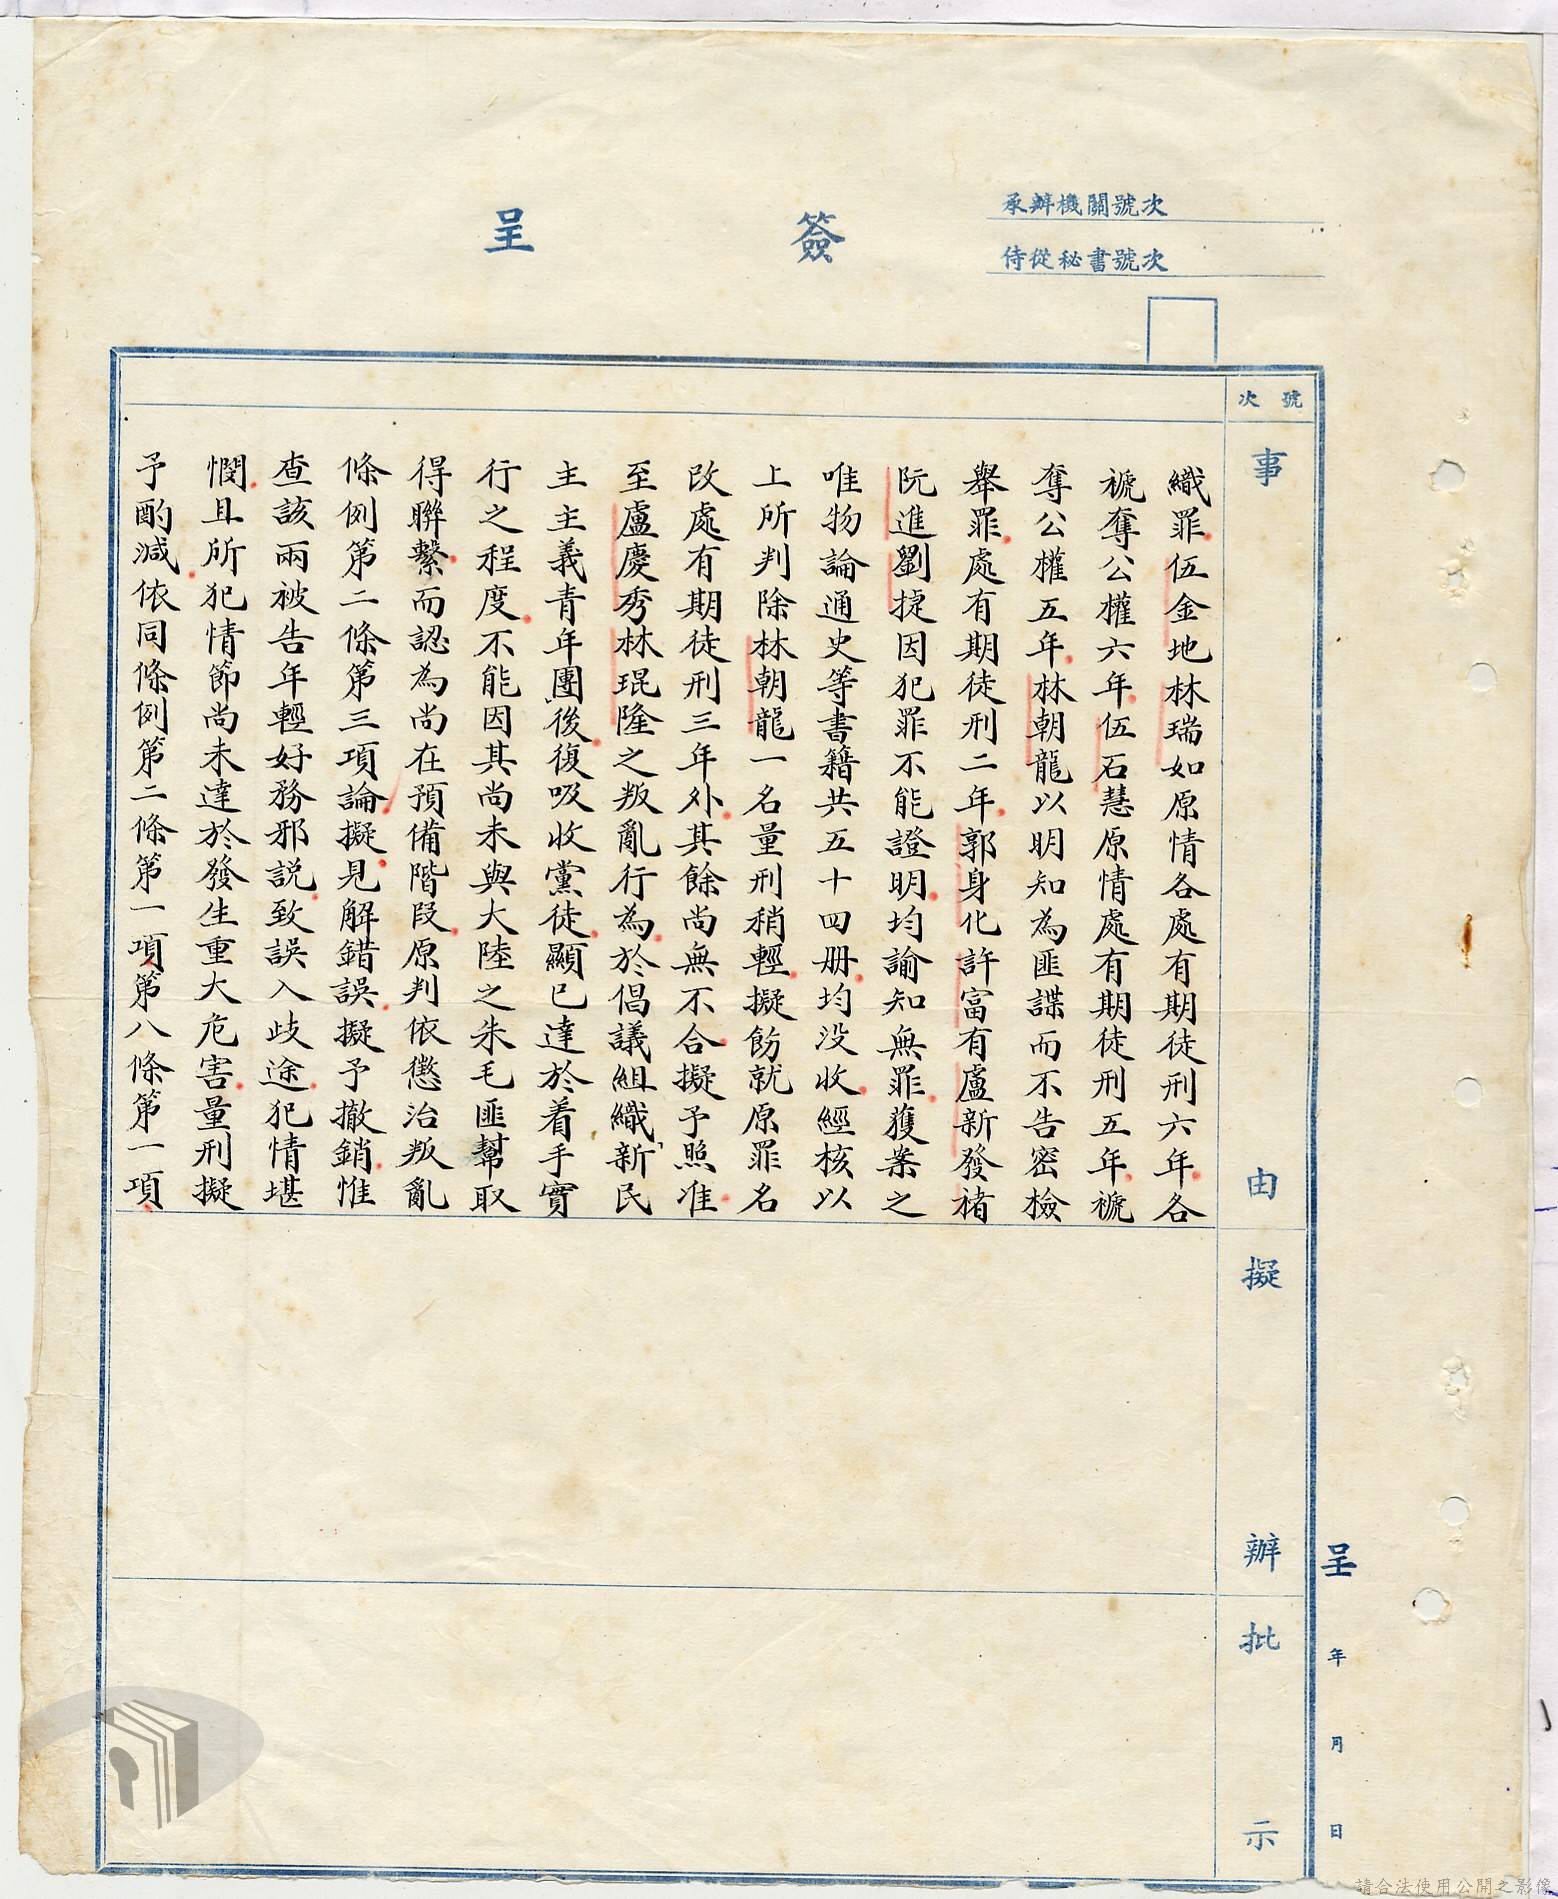 承辦機關號次
侍從秘書號次
簽呈
號次
事由
擬辦
批示
呈 年 月 日
織罪伍金地林瑞如原情各處有期徒刑六年各
褫奪公權六年伍石慧原情處有期徒刑五年褫
奪公權五年林朝龍以明知為匪諜而不告密檢
舉罪處有期徒刑二年郭身化許富有盧新發褚
阮進劉捷因犯罪不能證明均諭知無罪獲案之
唯物論通史等書籍共五十四册均没收經核以
上所判除林朝龍一名量刑稍輕擬飭就原罪名
改處有期徒刑三年外其餘尚無不合擬予照准
至盧慶秀林琨隆之叛亂行為於倡議組織新民
主主義青年團後復吸收黨徒顯已達於着手實
行之程度不能因其尚未與大陸之朱毛匪幫取
得聯繫而認為尚在預備階段原判依懲治叛亂
條例第二條第三項論擬見解錯誤擬予撤銷惟
查該兩被告年輕好務邪説致誤入歧途犯情堪
憫且所犯情節尚未達於發生重大危害量刑擬
予酌減依同條例第二條第一項第八條第一項
請合法使用公開之影像